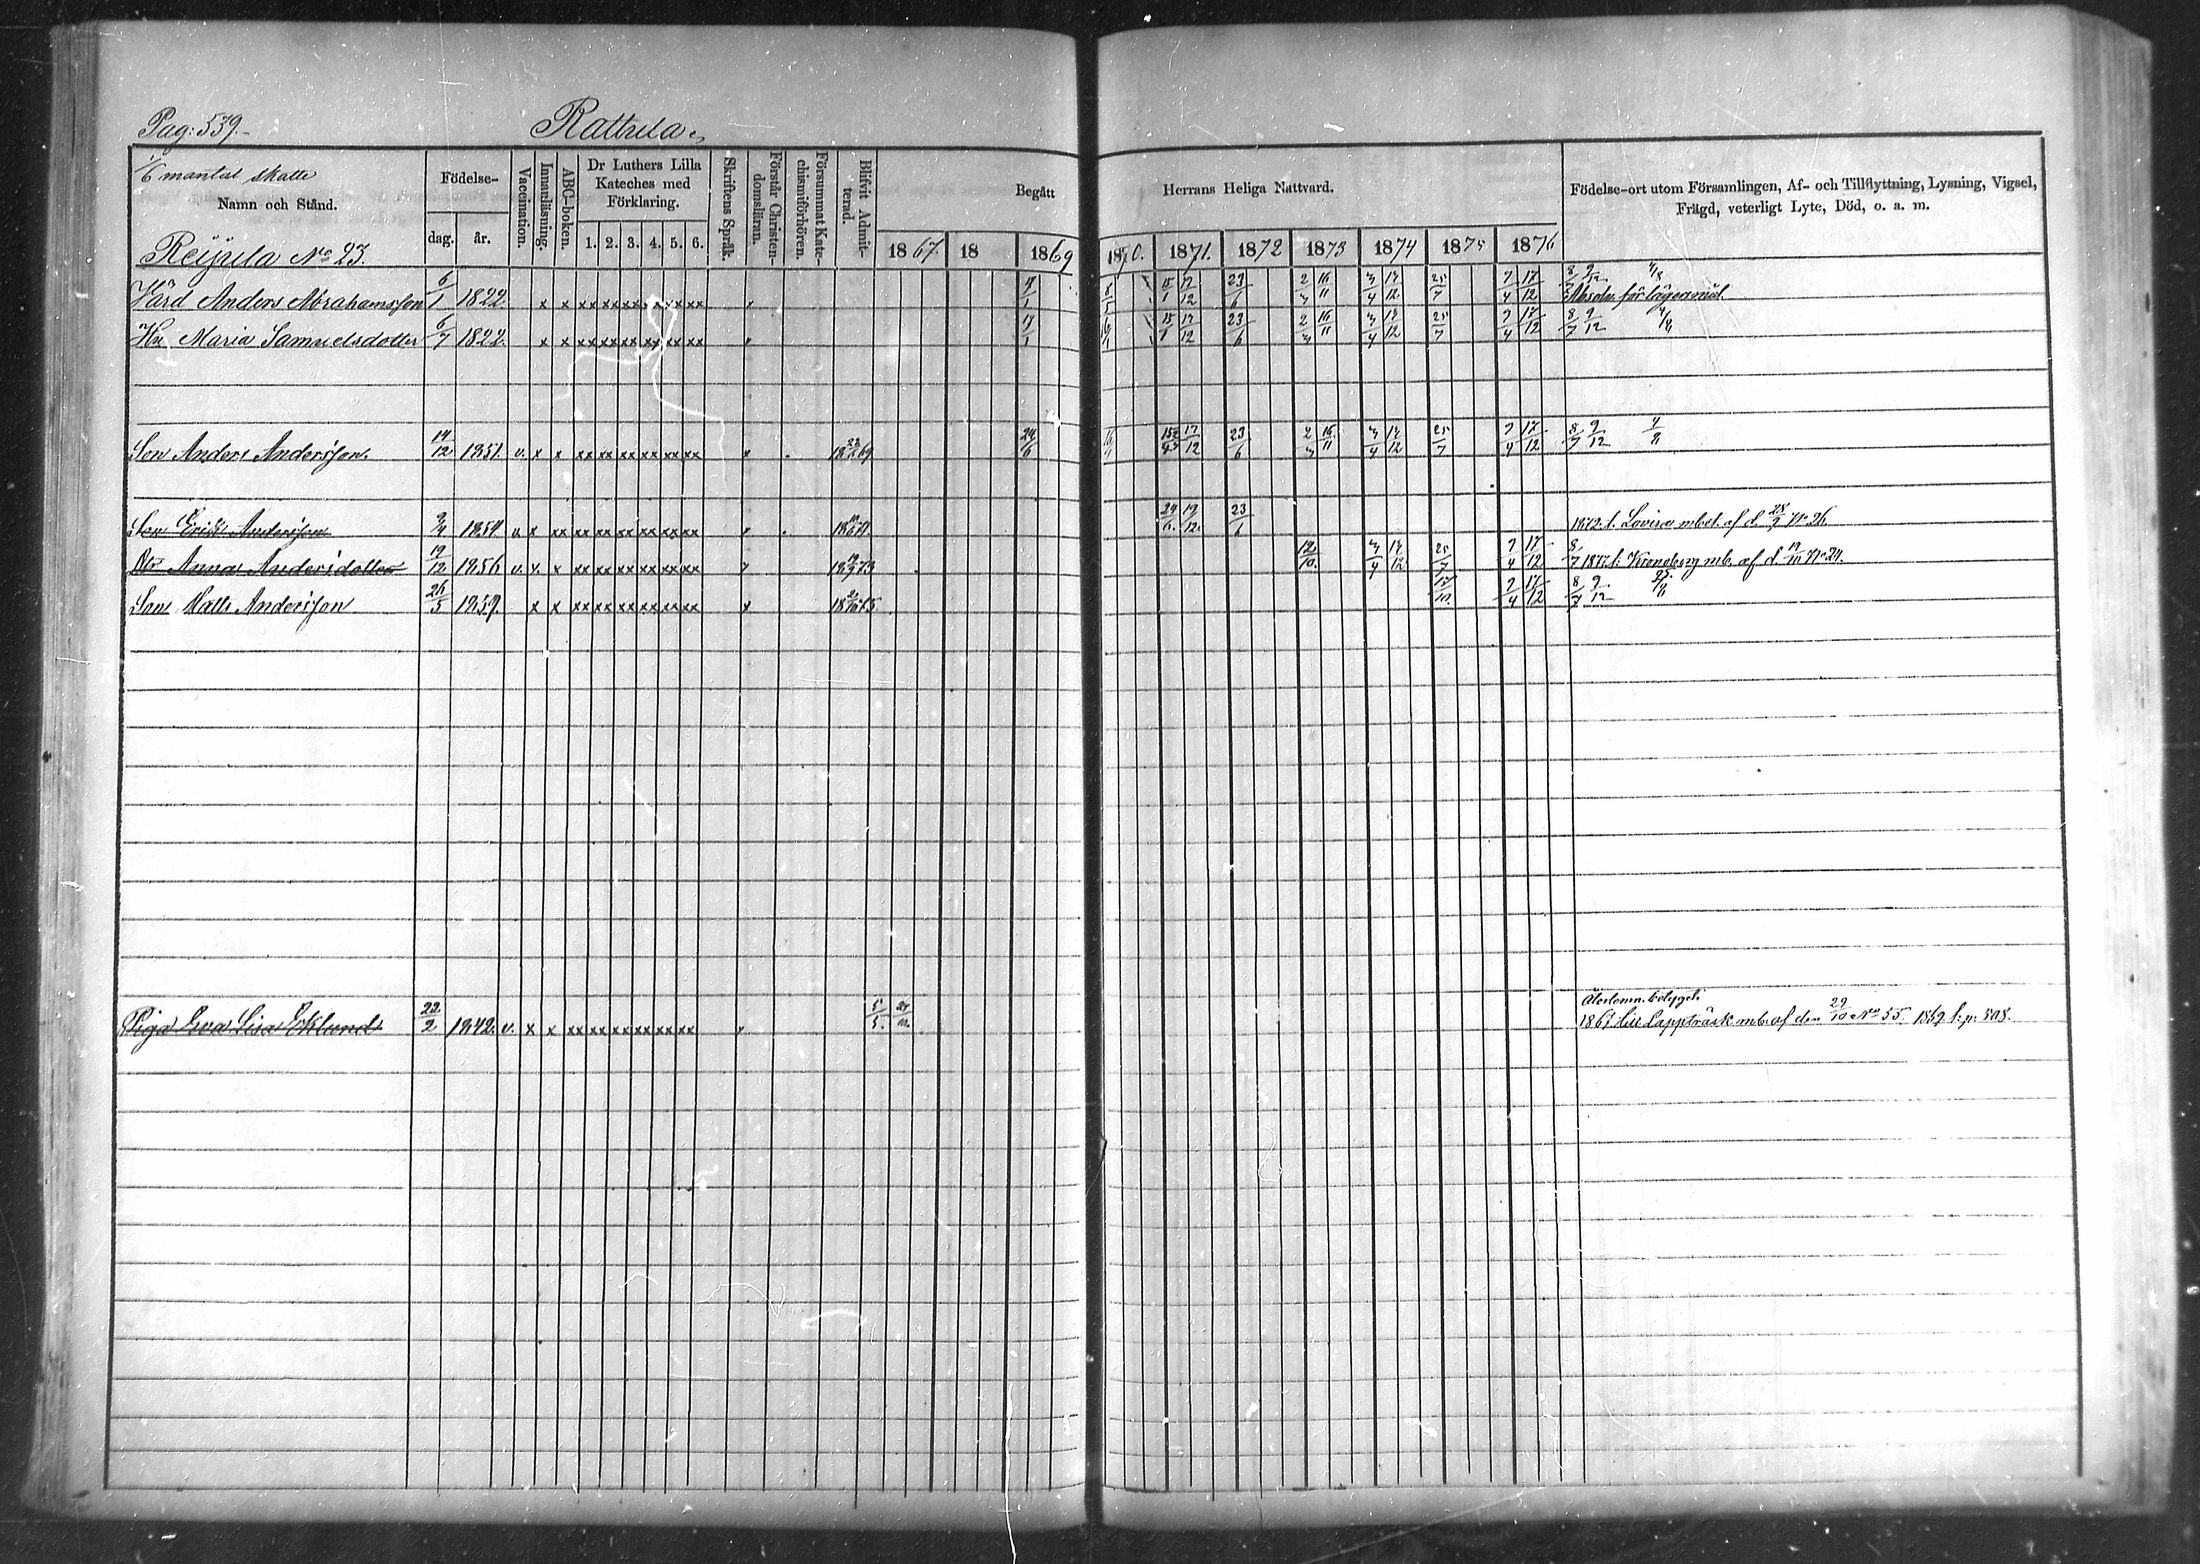 Pag: 539.
Rattula
1/6 mantal skatte
Namn och Stånd.
Födelse-
dag. år.
Vaccination.
Innanläsning.
ABC-boken.
Dr Luthers Lilla Kateches med Förklaring.
1. 2. 3. 4. 5. 6.
Skriftens Språk.
Förstår Christendomsläran.
Försummat Katechismiförhören.
Blifvit Admitterad.
Begått Herrans Heliga Nattvard.
1867. 18 1869 1870. 1871. 1872 1873 1874 1875 1876
Födelse-ort utom Församlingen, Af- och Tillflyttning, Lysning, Vigsel,
Frägd, veterligt Lyte, Död, o. a. m.
Reijula No 23.
Värd Anders Abrahamsson 6/1 1822. x x xx xx xx xx xx xx 23/6 2/3 16/11 25/7 7/4 17/12 8/7 9/12 Absolv. för lägersmål.
Hu Maria Samuelsdotter 6/7 1822. x x xx xx xx xx xx xx 23/6 2/3 16/11 25/7 7/4 17/12 8/7 9/12
Son Anders Andersson. 14/12 1851. v. x x xx xx xx xx xx xx 69 24/6 23/6 2/3 16/11 25/7 7/4 17/12 8/7 9/12
Son Erik Andersson 9/4 1854. v. x xx xx xx xx xx xx 23/6 1872 t. Lovisa mbet. af d. 28/9 No 26
Dr Anna Andersdotter 19/12 1856 v. x. x xx xx xx xx xx xx 73 12/10. 25/7 7/4 17/12 8/7 t. Kronoborg mb. af d.
Son Matts Andersson 26/5 1859. x x xx xx xx xx xx xx 75 7/4 17/12 8/7 9/12
Piga Eva Lisa Eklund. 22/2 1842. v. x x xx xx xx xx xx xx 5/5.
Återlemn. betyget.
1867 till Lappträsk mb. af den 29/10 No 55. 1869 t. p. 508.